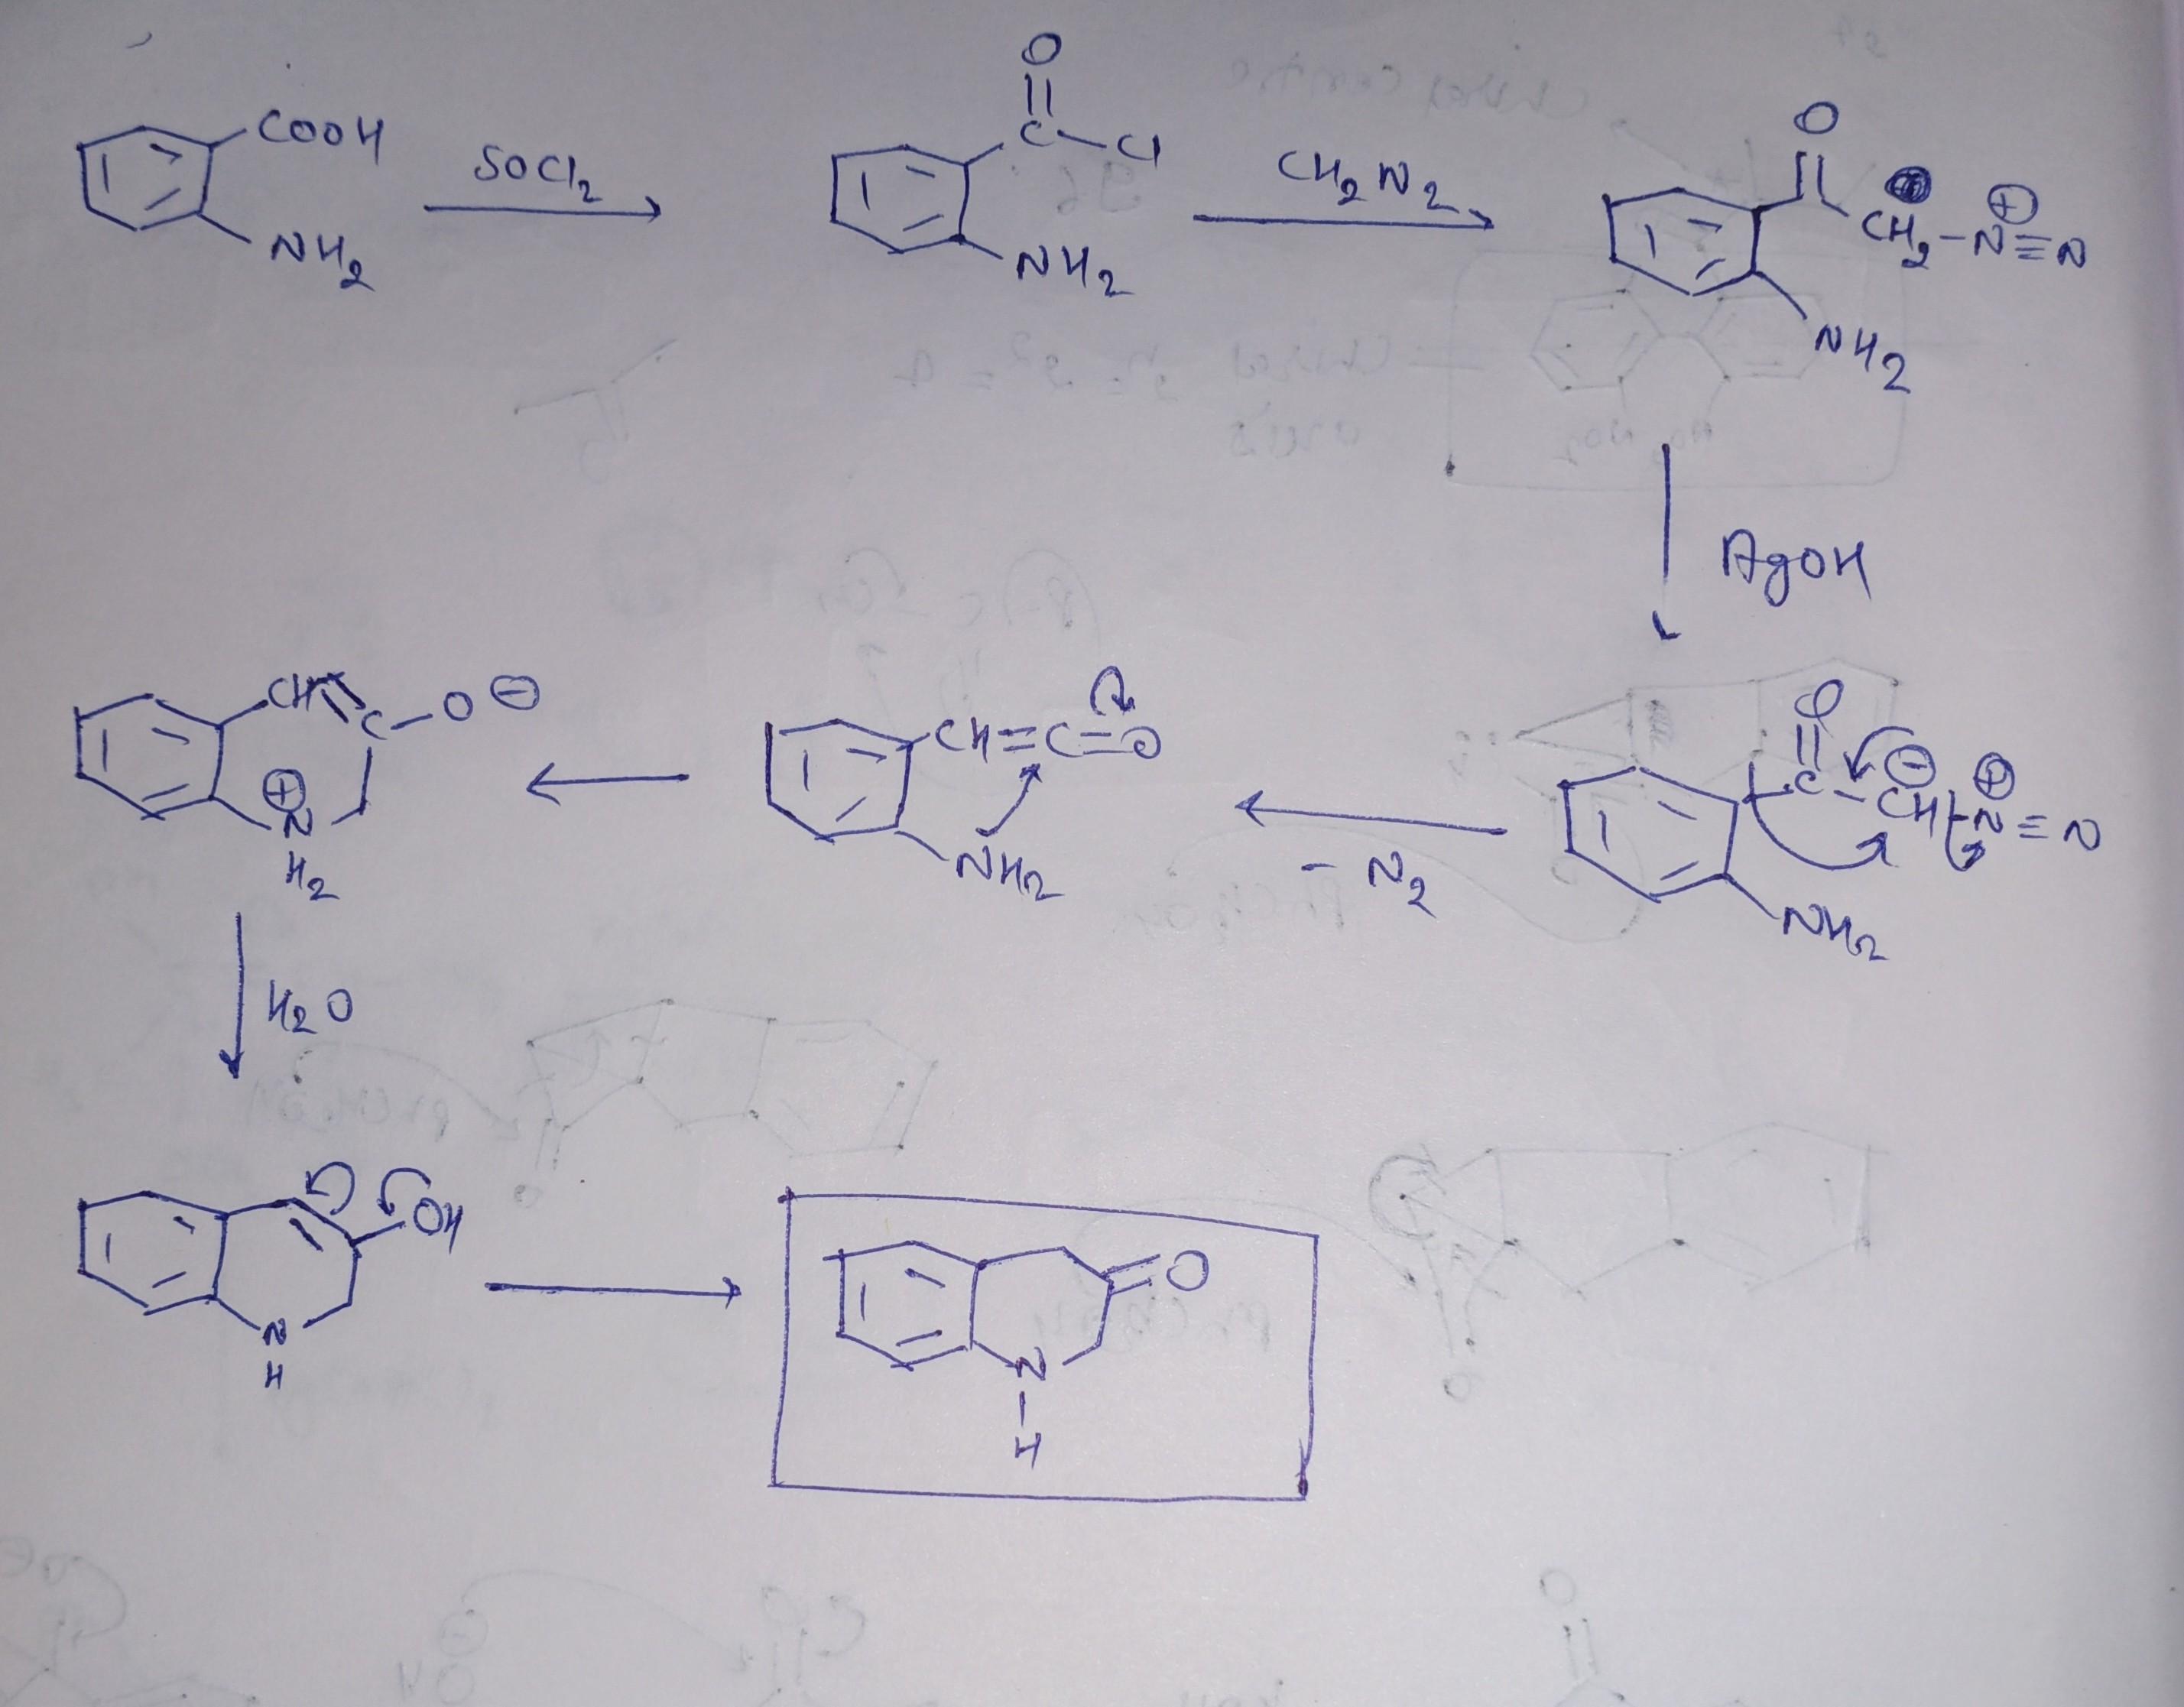 COOH
NH2
SOCl2
O
C-Cl
NH2
CH2N2
O
CH2-N≡N
⊕
NH2
AgOH
O
C-CH-N≡N
⊖ ⊕
NH2
-N2
CH=C=O
NH2
CH=C-O⊖
⊕
N
H2
H2O
OH
N
H
O
N
H